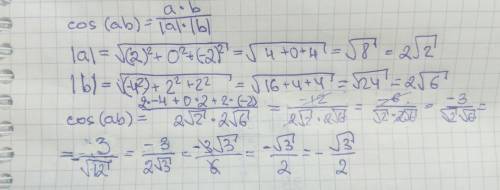 cos(ab) = a · b / |a| · |b|
|a| = √(2)² + 0² + (-2)² = √4+0+4 = √8 = 2√2
|b| = √(-4²) + 2² + 2² = √16+4+4 = √24 = 2√6
cos(ab) = 2·-4+0·2+2·(-2) / 2√2 · 2√6 = -12 / 2√2 · 2√6 = -6 / √2 · 2√6 = -3 / √2 · √6 =
= -3 / √12 = -3 / 2√3 = -3√3 / 6 = -√3 / 2 = - √3 / 2